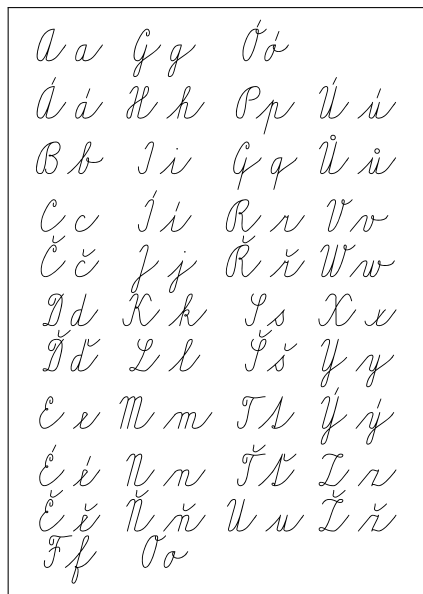 A a G g Ó ó
Á á H h P p Ú ú
B b I i Q q Ů ů
C c Í í R r V v
Č č J j Ř ř W w
D d K k S s X x
Ď ď L l Š š Y y
E e M m T t Ý ý
É é N n Ť ť Z z
Ě ě Ň ň U u Ž ž
F f O o